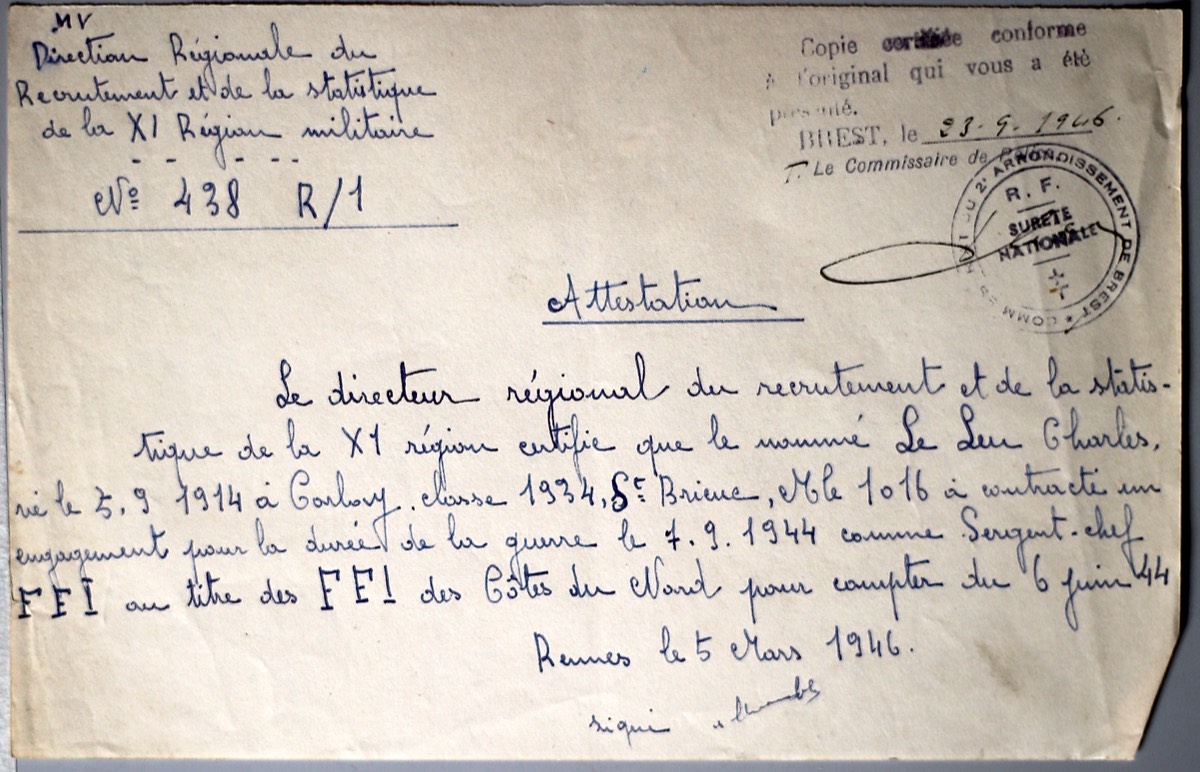 MV
Direction Régionale du
Recrutement et de la statistique
de la XI Région militaire
- - - - -
N° 438 R/1
Copie certifiée conforme
à l'original qui vous a été
présenté.
BREST, le 23-9-1946.
Le Commissaire de Police
DU 2e ARRONDISSEMENT DE BREST *
R. F.
SURETÉ
NATIONALE
Attestation
Le directeur régional du recrutement et de la statis-
tique de la XI région certifie que le nommé Le Leu Charles,
né le 5.9.1914 à Corlay, classe 1934, St Brieuc, Mle 1016 à contracté un
engagement pour la durée de la guerre le 7.9.1944 comme Sergent-chef
FFI au titre des FFI des Côtes du Nord pour compter du 6 juin 44
Rennes le 5 Mars 1946.
signé